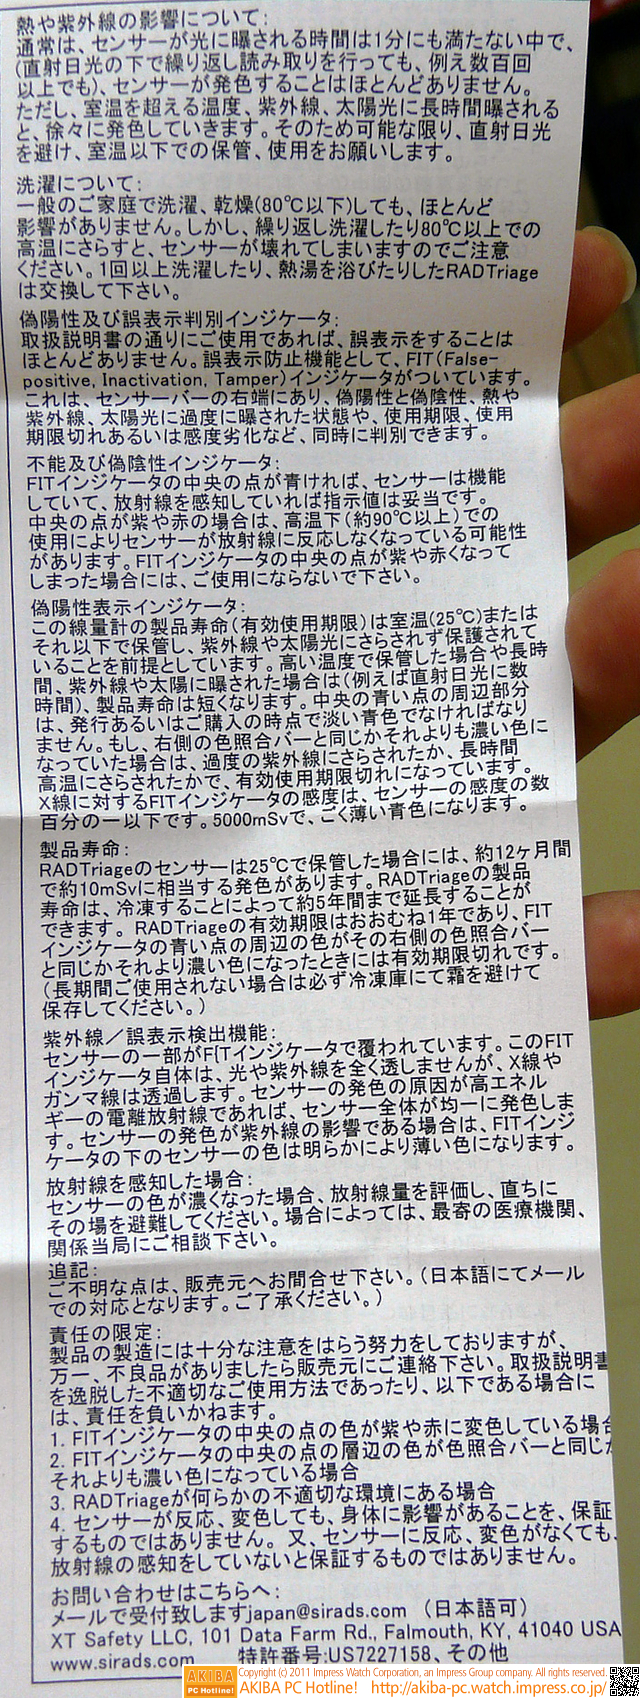 熱や紫外線の影響について:
通常は、センサーが光に曝される時間は1分にも満たない中で、
(直射日光の下で繰り返し読み取りを行っても、例え数百回
以上でも)、センサーが発色することはほとんどありません。
ただし、室温を超える温度、紫外線、太陽光に長時間曝される
と、徐々に発色していきます。そのため可能な限り、直射日光
を避け、室温以下での保管、使用をお願いします。
洗濯について:
一般のご家庭で洗濯、乾燥(80℃以下)しても、ほとんど
影響がありません。しかし、繰り返し洗濯したり80℃以上での
高温にさらすと、センサーが壊れてしまいますのでご注意
ください。1回以上洗濯したり、熱湯を浴びたりしたRADTriage
は交換して下さい。
偽陽性及び誤表示判別インジケータ:
取扱説明書の通りにご使用であれば、誤表示をすることは
ほとんどありません。誤表示防止機能として、FIT(False-
positive, Inactivation, Tamper)インジケータがついています。
これは、センサーバーの右端にあり、偽陽性と偽陰性、熱や
紫外線、太陽光に過度に曝された状態や、使用期限、使用
期限切れあるいは感度劣化など、同時に判別できます。
不能及び偽陰性インジケータ:
FITインジケータの中央の点が青ければ、センサーは機能
していて、放射線を感知していれば指示値は妥当です。
中央の点が紫や赤の場合は、高温下(約90℃以上)での
使用によりセンサーが放射線に反応しなくなっている可能性
があります。FITインジケータの中央の点が紫や赤くなって
しまった場合には、ご使用にならないで下さい。
偽陽性表示インジケータ:
この線量計の製品寿命(有効使用期限)は室温(25℃)または
それ以下で保管し、紫外線や太陽光にさらされず保護されて
いることを前提としています。高い温度で保管した場合や長時
間、紫外線や太陽に曝された場合は(例えば直射日光に数
時間)、製品寿命は短くなります。中央の青い点の周辺部分
は、発行あるいはご購入の時点で淡い青色でなければなり
ません。もし、右側の色照合バーと同じかそれよりも濃い色に
なっていた場合は、過度の紫外線にさらされたか、長時間
高温にさらされたかで、有効使用期限切れになっています。
X線に対するFITインジケータの感度は、センサーの感度の数
百分の一以下です。5000mSvで、ごく薄い青色になります。
製品寿命:
RADTriageのセンサーは25℃で保管した場合には、約12ヶ月間
で約10mSvに相当する発色があります。RADTriageの製品
寿命は、冷凍することによって約5年間まで延長することが
できます。RADTriageの有効期限はおおむね1年であり、FIT
インジケータの青い点の周辺の色がその右側の色照合バー
と同じかそれより濃い色になったときには有効期限切れです。
(長期間ご使用されない場合は必ず冷凍庫にて霜を避けて
保存してください。)
紫外線／誤表示検出機能:
センサーの一部がF[Tインジケータで覆われています。このFIT
インジケータ自体は、光や紫外線を全く透しませんが、X線や
ガンマ線は透過します。センサーの発色の原因が高エネル
ギーの電離放射線であれば、センサー全体が均一に発色しま
す。センサーの発色が紫外線の影響である場合は、FITインジ
ケータの下のセンサーの色は明らかにより薄い色になります。
放射線を感知した場合:
センサーの色が濃くなった場合、放射線量を評価し、直ちに
その場を避難してください。場合によっては、最寄の医療機関、
関係当局にご相談下さい。
追記:
ご不明な点は、販売元へお問合せ下さい。(日本語にてメール
での対応となります。ご了承ください。)
責任の限定:
製品の製造には十分な注意をはらう努力をしておりますが、
万一、不良品がありましたら販売元にご連絡下さい。取扱説明書
を逸脱した不適切なご使用方法であったり、以下である場合に
は、責任を負いかねます。
1. FITインジケータの中央の点の色が紫や赤に変色している場合
2. FITインジケータの中央の点の層辺の色が色照合バーと同じか
それよりも濃い色になっている場合
3. RADTriageが何らかの不適切な環境にある場合
4. センサーが反応、変色しても、身体に影響があることを、保証
するものではありません。又、センサーに反応、変色がなくても、
放射線の感知をしていないと保証するものではありません。
お問い合わせはこちらへ:
メールで受付致しますjapan@sirads.com （日本語可）
XT Safety LLC, 101 Data Farm Rd., Falmouth, KY, 41040 USA
www.sirads.com 特許番号:US7227158、その他
AKIBA PC Hotline! Copyright (c) 2011 Impress Watch Corporation, an Impress Group company. All rights reserved.
AKIBA PC Hotline! http://akiba-pc.watch.impress.co.jp/